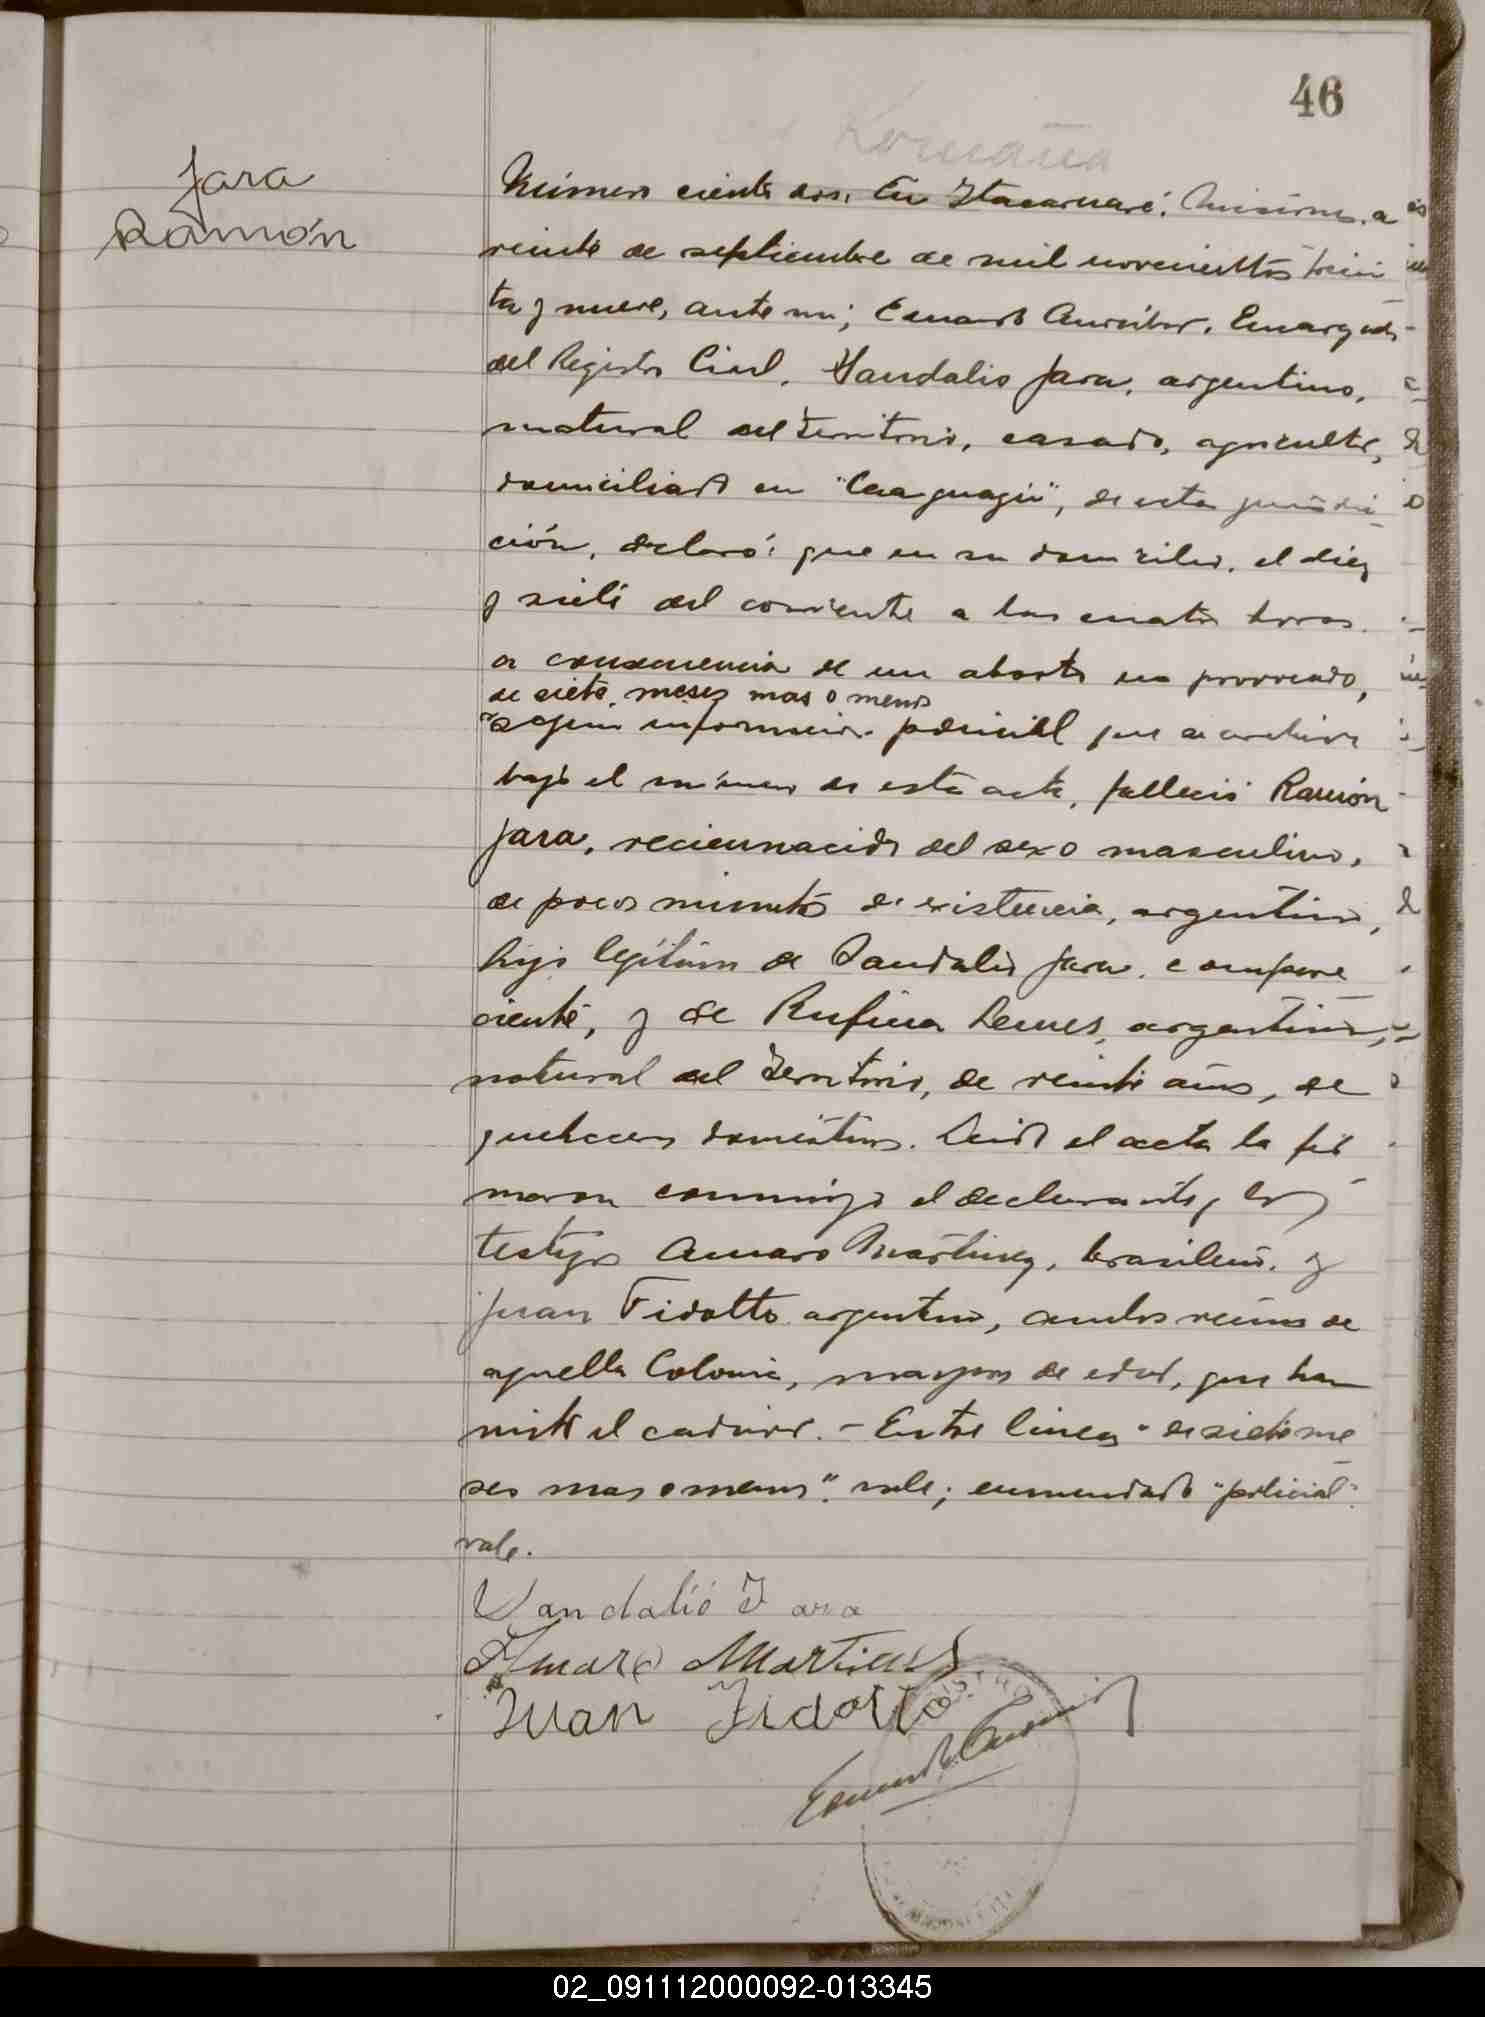 46
Jara
Ramón
Número ciento dos. En Itacaruaré, Misiones, a
veinte de septiembre de mil novecientos trein
ta y nueve, ante mi, Encargado
del Registro Civil, Vandalio Jara, argentino,
natural del Territorio, casado, agricultor,
domiciliado en de esta jurisdic
ción, declaró: que en su domicilio, el diez
y siete del corriente a las cuatro horas,
a consecuencia de un aborto no provocado,
de siete meses mas o menos
segun informacion policial que se archiva
bajo el número de esta acta, falleció Ramón
Jara, reciennacido del sexo masculino,
de pocos minutos de existencia, argentino,
hijo legítimo de Vandalio Jara, compare
ciente, y de Rufina Lemes, argentina,
natural del Territorio, de veinte años, de
quehaceres domésticos. Leida el acta la fir
maron conmigo el declarante y los
testigos Amaro Martinez, brasileño, y
Juan Fidotto argentino, ambos vecinos de
aquella Colonia, mayores de edad, que han
visto el cadáver. - Entre lineas "de siete me
ses mas o menos". vale; enmendado "policial"
vale.
Vandalió Jara
Amaro
Juan Fidotto
02_091112000092-013345